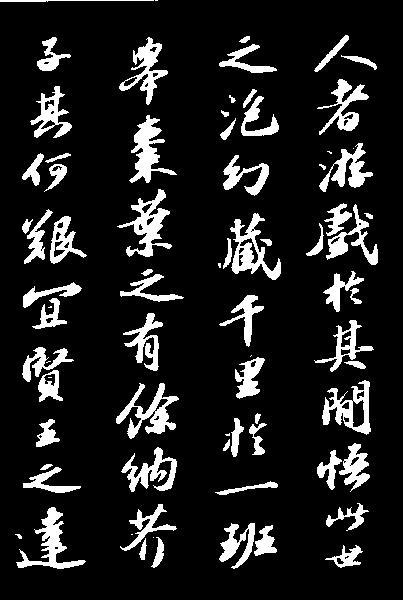 人者游戲於其間悟此世
之泡幻藏千里於一班
舉棗葉之有餘納芥
子其何艱宜賢王之達